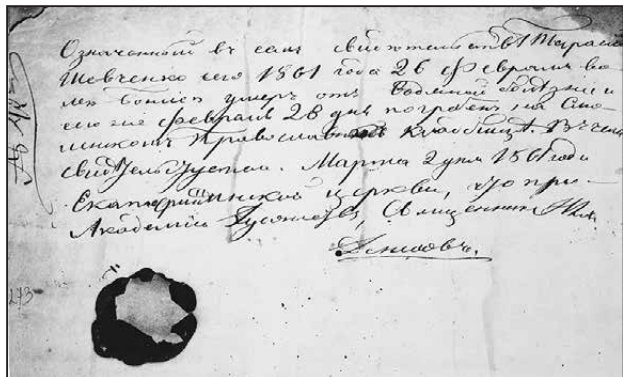 Означенный въ семъ свидѣтельствѣ Тарасъ
Шевченко сего 1861 года 26 Февраля
умеръ отъ водяной болѣзни и
сего же февраля 28 дня погребенъ на Смо-
ленскомъ Православномъ кладбищѣ. Въ чемъ
свидѣтельствую. Марта 2 дня 1861 года
Екатерининской церкви, что при
Академіи Художествъ, Священникъ
273